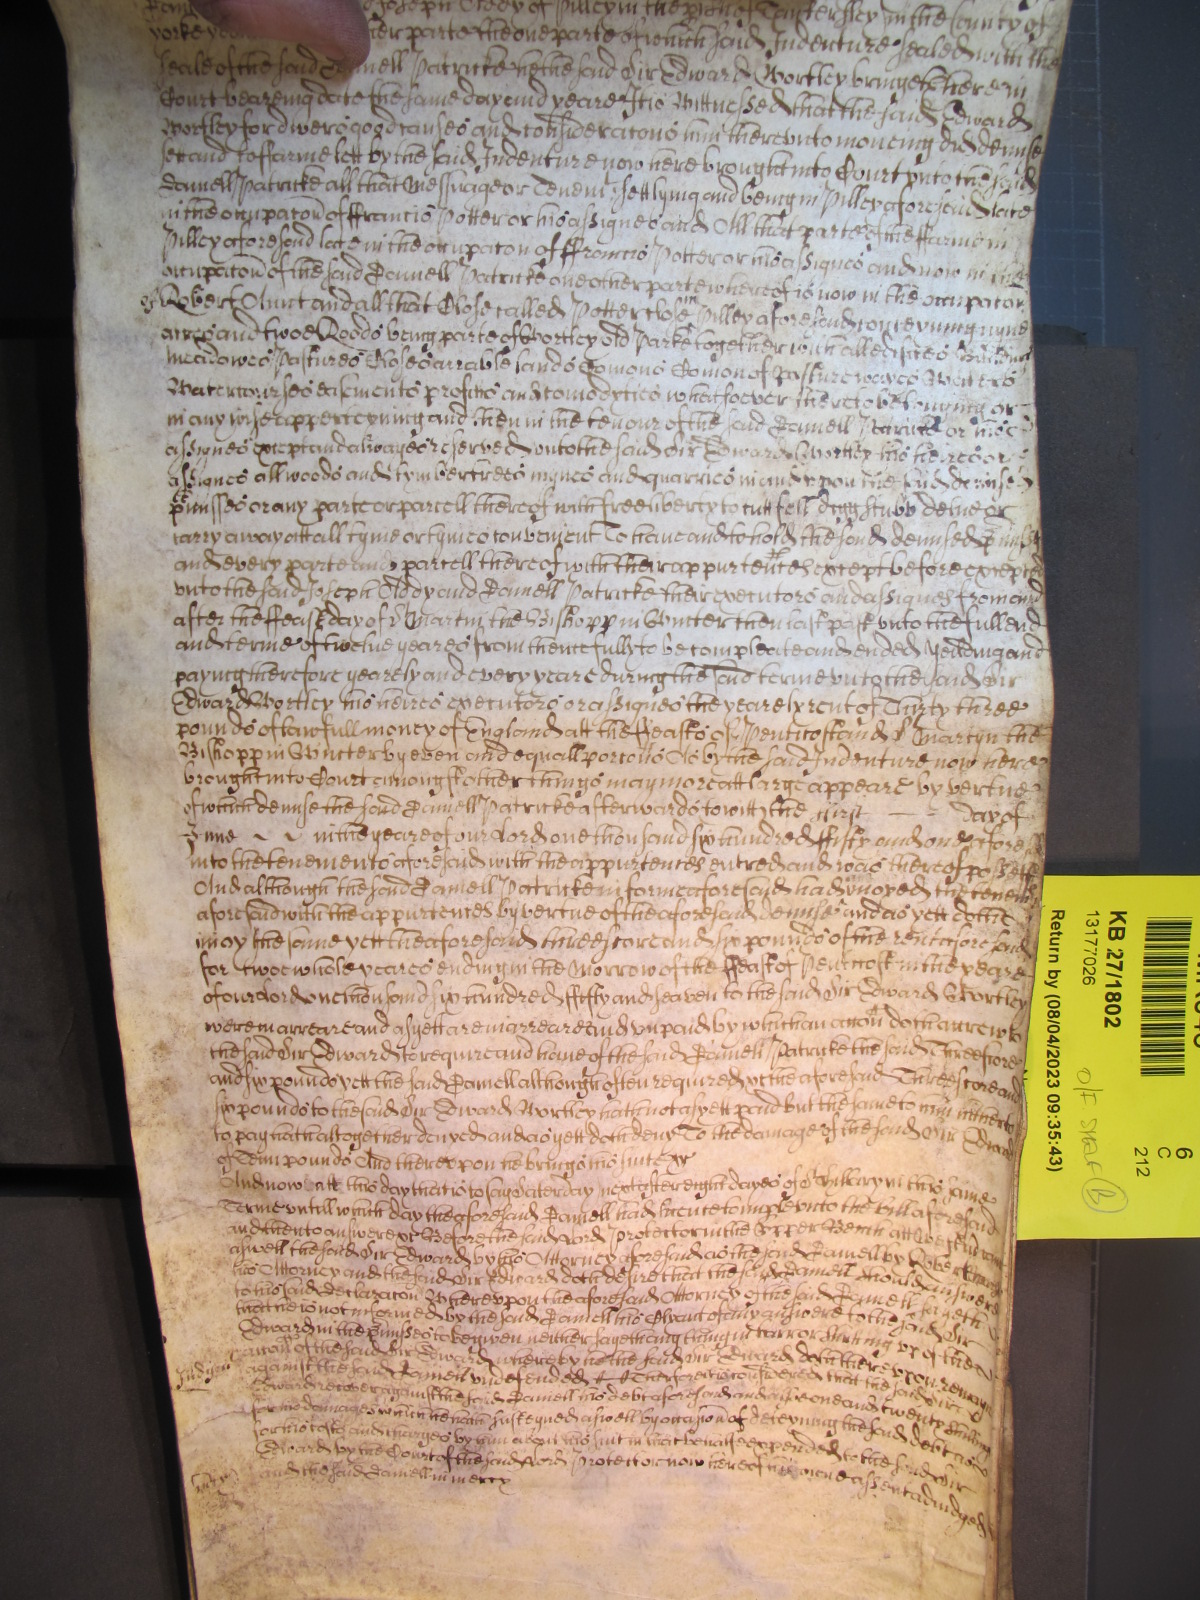 Joseph Oddy of Pilley in the pish of Tankersley in the County of
yorke other parte the one parte of which said Indenture sealed with the
seale of the said Pannell Patricke he the said Sir Edward Wortley bringeth here in
Court beareing date the same day and yeare Itis Wittnessed that the said Edward
Wortley for divers good causes and consideracons him therevnto moveing did demise
sett and to ffarme lett by the said Indenture now here brought into Court vnto the said
Pannell Patricke all that Messuage or Tenemt sett lying and being in Pilley aforesaid late
in the occupacon of ffrancis Potter or his assignes and All that parte of the ffarme in
Pilley aforesaid late in the occupacon of ffrancis Potter or his assignes and now in the
occupacon of the said Pannell Patricke one other parte whereof is now in the occupacon
of Robert Hunt and all that Close called Potter close in Pilley aforesaid conteyneing nyne
acres and twoe Roods being parte of Wortley old Parke together with all edifices
meadowes Pastures Closes arrable lands Comons Comon of Pasture wayes Waters
Watercourses easements profitts and comodyties whatsoever thereto belonging or
in any wise apperteyning and then in the tenour of the said Pannell Patricke or his
assignes except and alwayes reserved vnto the said Sir Edward Wortley his heires or
assignes all woods and tymber trees mynes and quarries in and vpon the said demised
pmisses or any parte or parcell thereof with free liberty to cutt fell digg stubb delve or
carry away att all tyme or tymes convenient To have and to hold the said demised pmisses
and every parte and parcell thereof with their appurtences except before excepted
vnto the said Joseph Oddy and Pannell Patricke their executors and assignes from and
after the ffeast day of St Martin the Bishopp in Winter then last past vnto the full end
and terme of twelve yeares from thence fully to be compleate and ended yeilding and
paying therefore yearely and every yeare during the said terme vnto the said Sir
Edward Wortley his heires executors or assignes the yearely rent of Thirty three
pounds of lawfull money of England att the ffeasts of Penticost and St Martyn the
Bishopp in Winter by even and equall porcons As by the said Indenture now here
brought into Court amongst other things may more att large appeare by vertue
of which demise the said Pannell Patricke afterwards to witt the first day of
June in the yeare of our Lord one thousand six hundred ffifty and one aforesaid
into the tenements aforesaid with the appurtences entred and was thereof possessed
And although the said Pannell Patricke in forme aforesaid had inioyed the tenemts
aforesaid with the appurtences by vertue of the aforesaid demise and as yett doth
inioy the same yett the aforesaid threescore and six pounds of the rent aforesaid
for twoe whole yeares ending in the Morrow of the ffeast of Penticost in the yeare
of our Lord one thousand six hundred ffifty and seaven to the said Sir Edward Wortley
were in arreare and as yett are in arreare and vnpaid by which an accon doth accrew to
the said Sir Edward to require and have of the said Pannell Patricke the said Threescore
and six pounds yett the said Pannell although often required yet the aforesaid Threescore and
six pounds to the said Sir Edward Wortley hath not as yett paid but the same to him hitherto
to pay hath altogether denyed and as yett doth deny To the damage of the said Sir Edward
of Tenn pounds And therevpon he brings his suite &c
And now att this day that is to say Saterday next after eight dayes of St Hillary in this same
Terme vntill which day the aforesaid Pannell had licence to imple vnto the bill aforesaid
and then to answere &c Before the said Lord Protector in the Vpper Bench att Westm came
aswell the said Sir Edward by his Attorney aforesaid as the said Pannell by Robert
his Attorney and the said Sir Edward doth desire that the said Pannell should answere
to his said declaracon Wherevpon the aforesaid Attorney of the said Pannell sayeth
that he is not informed by the said Pannell his Clyent of any answere to the said Sir
Edward in the pmisses to be given neither sayeth any thing in barr or hindring of the
accon of the said Sir Edward whereby he the said Sir Edward doth therevpon remayne
Judgmt against the said Pannell vndefended &c Therefore it is considered that the said Sir
Edward recover against the said Pannell his debt aforesaid and alsoe one and twenty shillings
for his damages which he hath susteyned aswell by occasion of deteyning the said debt as
for his costs and charges by him about his suit in that behalfe expended to the said Sir
Edward by the Court of the said Lord Protector now here of his owne assent adiudged
and the said Pannell in mercy
KB 27/1802
13177026
Return by (08/04/2023 09:35:43)
6
C
212